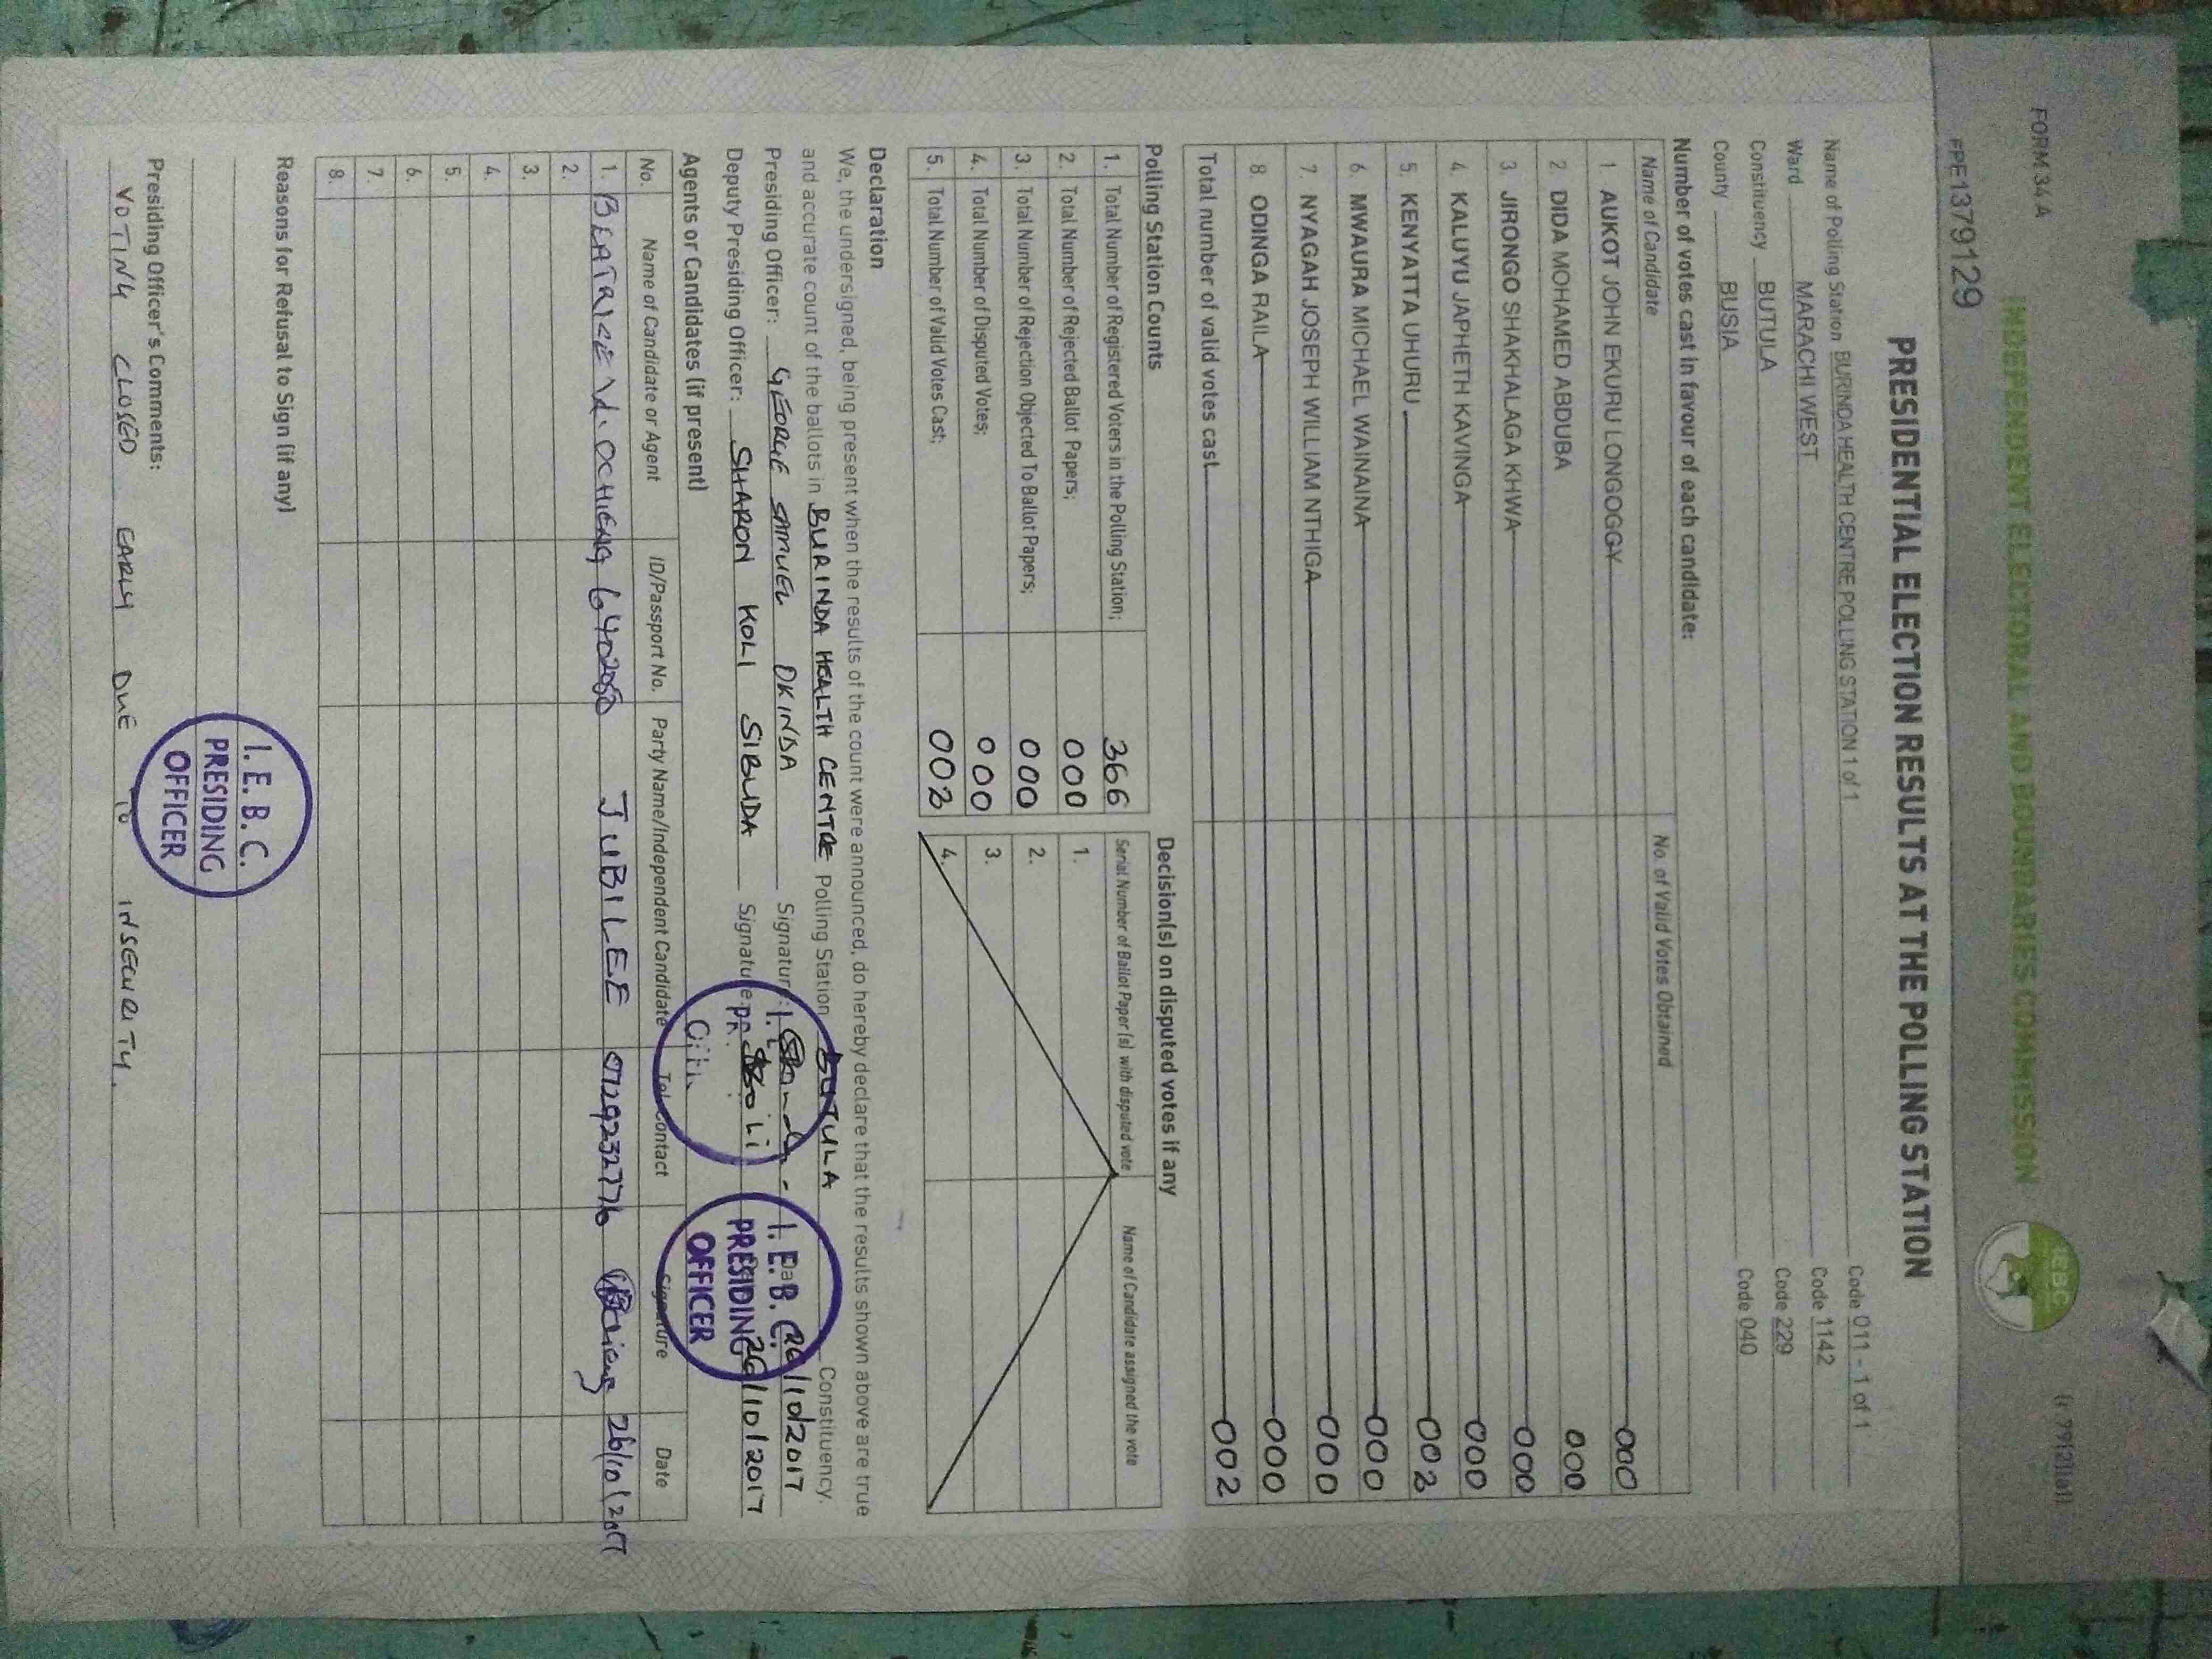 FORM 34 A
(r. 79(2)(a))
INDEPENDENT ELECTORAL AND BOUNDARIES COMMISSION
IEBC
FPE1379129
PRESIDENTIAL ELECTION RESULTS AT THE POLLING STATION
Name of Polling Station BURINDA HEALTH CENTRE POLLING STATION 1 of 1 Code 011 - 1 of 1
Ward MARACHI WEST Code 1142
Constituency BUTULA Code 229
County BUSIA Code 040
Number of votes cast in favour of each candidate:
Name of Candidate No. of Valid Votes Obtained
1 AUKOT JOHN EKURU LONGOGGY 000
2 DIDA MOHAMED ABDUBA 000
3 JIRONGO SHAKHALAGA KHWA 000
4. KALUYU JAPHETH KAVINGA 000
5. KENYATTA UHURU 002
6. MWAURA MICHAEL WAINAINA 000
7. NYAGAH JOSEPH WILLIAM NTHIGA 000
8 ODINGA RAILA 000
Total number of valid votes cast 002
Polling Station Counts
1. Total Number of Registered Voters in the Polling Station; 366
2. Total Number of Rejected Ballot Papers; 000
3. Total Number of Rejection Objected To Ballot Papers; 000
4. Total Number of Disputed Votes; 000
5. Total Number of Valid Votes Cast; 002
Decision(s) on disputed votes if any
Serial Number of Ballot Paper (s) with disputed vote Name of Candidate assigned the vote
1.
2.
3.
4.
Declaration
We, the undersigned, being present when the results of the count were announced, do hereby declare that the results shown above are true
and accurate count of the ballots in BURINDA HEALTH CENTRE Polling Station BUTULA Constituency.
Presiding Officer: GEORGE SAMUEL OKINDA Signature: 26/10/2017
Deputy Presiding Officer: SHARON KOLI SIBUDA Signature: 26/10/2017
I. E. B. C.
PRESIDING
OFFICER
Agents or Candidates (if present)
No. Name of Candidate or Agent ID/Passport No. Party Name/Independent Candidate Tel. Contact Signature Date
1. BEATRICE OCHIENG JUBILEE 0729232776 26/10/2017
2.
3.
4.
5.
6.
7.
8.
Reasons for Refusal to Sign (if any)
I. E. B. C.
PRESIDING
OFFICER
Presiding Officer's Comments:
VOTING CLOSED EARLY DUE TO INSECURITY.